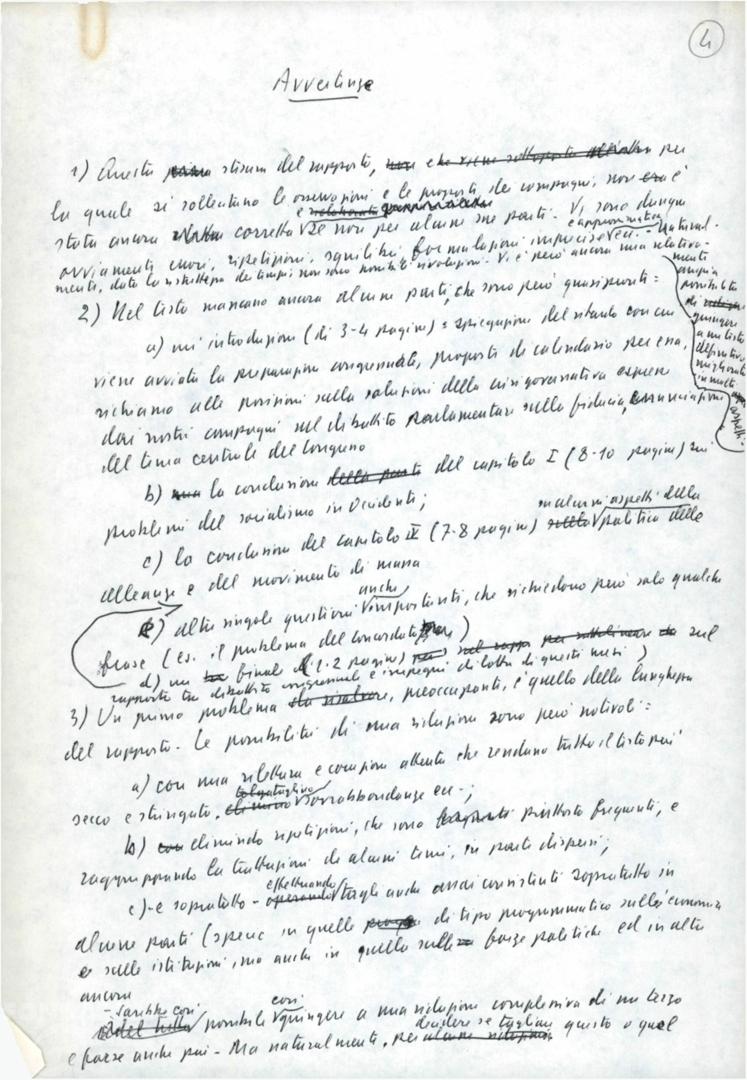 4
Avvertenze
1) Questa prima stesura del rapporto, non che viene sottoposta per
la quale si sollecitano le osservazioni e le proposte dei compagni, non era è
e rielaborata
stata ancora corretta se non per alcune sue parti. Vi sono dunque
e approssimative
ovviamente errori, ripetizioni, squilibri, formulazioni imprecise ecc. - Natural-
mente, data la ristrettezza dei tempi, non sono possibili rivoluzioni. Vi è però ancora una relativa-
mente
ampia
possibilità
di
giungere
a un testo
definitivo
migliorato
in molti
aspetti.
2) Nel testo mancano ancora alcune parti, che sono però quasi pronte:
a) un'introduzione (di 3-4 pagine): spiegazione del ritardo con cui
viene avviata la preparazione congressuale, proposte di calendario per essa,
richiamo alle posizioni sulla soluzione della crisi governativa espresse
dai nostri compagni nel dibattito parlamentare sulla fiducia, enunciazione
del tema centrale del Congresso
b) la conclusione della parte del capitolo I (8-10 pagine) sui
problemi del socialismo in Occidente;
in alcuni aspetti della
c) la conclusione del capitolo IV (7-8 pagine) sulla politica delle
alleanze e del movimento di massa
anche
e) altre singole questioni importanti, che richiedono però solo qualche
frase (es. il problema del Concordato)
d) un finale (1-2 pagine) per sottolineare sul
rapporto tra dibattito congressuale e impegni di lotta di questi mesi)
3) Un primo problema da risolvere, preoccupante, è quello della lunghezza
del rapporto. Le possibilità di una riduzione sono però notevoli:
a) con una rilettura e correzione attenta che rendano tutto il testo più
secco e stringato, sovrabbondanze ecc.;
b) con eliminando ripetizioni, che sono frequenti piuttosto frequenti, e
raggruppando la trattazione di alcuni temi, in parte dispersi;
effettuando
c) - e soprattutto - operando tagli anche assai consistenti soprattutto in
alcune parti (specie in quelle di tipo programmatico sull'economia
e sulle istituzioni, ma anche in quella sulle forze politiche ed in altre
ancora
- Sarebbe così così
possibile giungere a una riduzione complessiva di un terzo
decidere se tagliare
e forse anche più - Ma naturalmente, per questo o quel